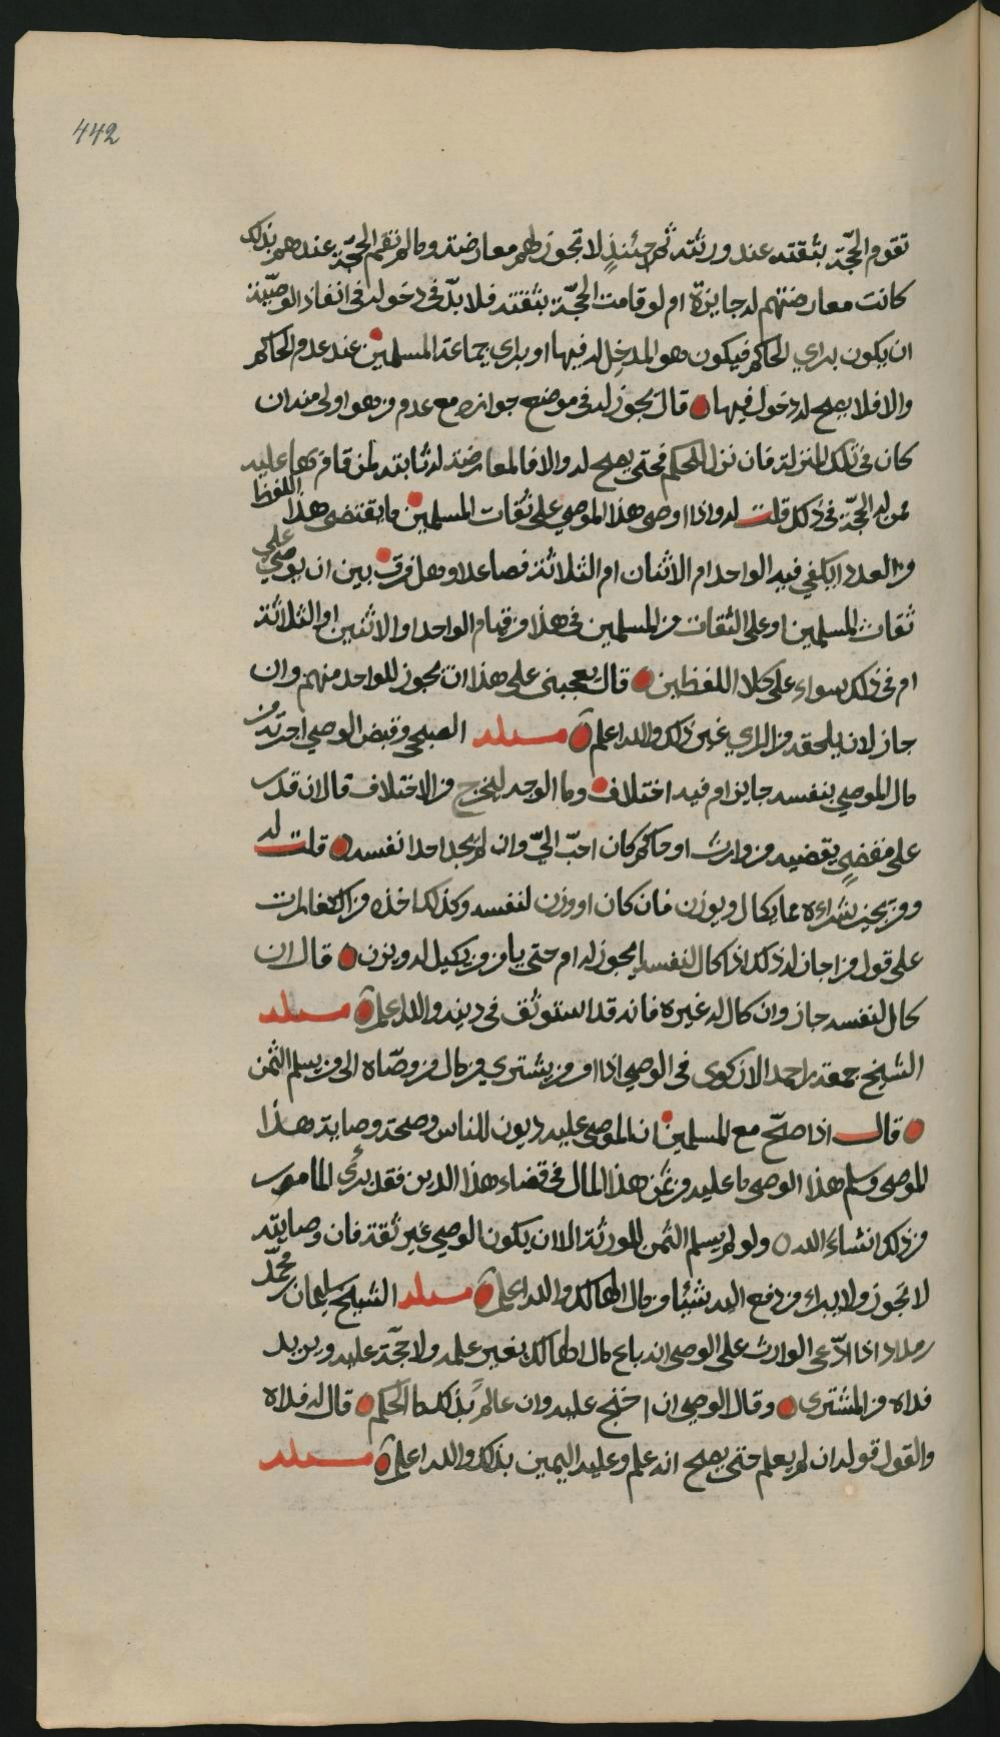 442
تقوم الحجّة بثقته عند ورثته ثم حينئذٍ لا تجوز لهم معارضته وما لم تقم الحجّة عندهم بذلك
كانت معارضتهم له جايزة ولو قامت الحجّة بثقته فلا بدّ في دخوله في انفاذ الوصيّة
ان يكون براي الحاكم فيكون هو المدخل له فيها او براي جماعة المسلمين عند عدم الحاكم
والا فلا يصح له دخول فيها قال يجوز له في موضع جوازه مع عدمه وهو اولى منه ان
كان في تلك المنزلة فان نزل للحكم فحتى يصح له والا فالمعارضة له ثابتة لمن قام بها عليه
ممن له الحجّة في ذلك قلت له واذا اوصى هذا الموصي على ثقات المسلمين ما يقتضى هذا اللفظ
من العدد ايكفي فيه الواحد ام الاثنان ام الثلاثة فصاعدا وهل فرق بين ان يوصي على
ثقات المسلمين او على الثقات من المسلمين في هذا من قيام الواحد او الاثنين او الثلاثة
ام في ذلك سواء على كلا اللفظين قال يعجبني على هذا ان يجوز للواحد منهم وان
جاز لان يلحقه من الراي غير ذلك والله اعلم مسئلة الصبحي وقبض الوصي اجرته من
مال الموصي بنفسه جايز ام فيه اختلاف وما الوجه ليخرج من الاختلاف قال ان قدر
على مقضٍ يقضيه من وارث او حاكم كان احبّ اليّ وان لم يجد احدا نفسه قلت له
ومن يجيز شراءه مما يكال ويوزن فان كان او وزن لنفسه وكذلك اخذه من الكفارات
على قول من اجاز له ذلك اذا كال لنفسه ايجوز له ام حتى يامر من يكيل له ويزن قال ان
كال لنفسه جاز وان كال له غيره فانه قد استوثق في دينه والله اعلم مسئلة
الشيخ جمعة بن احمد الازكوي في الوصي اذا امر من يشتري من مال من وصّاه الى من يسلم الثمن
قال اذا صحّ مع المسلمين ان الموصي عليه ديون للناس وصحة وصاية هذا
الموصي وسلم هذا الوصي ما عليه من ثمن هذا المال في قضاء هذا الدين فقد برئ المامور
من ذلك انشاء الله ولو لم يسلم الثمن للورثة الا ان يكون الوصي غير ثقة فان وصايته
لا تجوز ولا يبراء من دفع اليه شيئا من مال الهالك والله اعلم مسئلة الشيخ سليمان بن محمّد
بن مداد اذا ادّعى الوارث على الوصي انه باع مال الهالك بغير علمه ولا حجّة عليه ويريد
فداه من المشتري وقال الوصي ان احتج عليه وان عالمٌ بذلك ما الحكم قال له فداه
والقول قوله ان لم يعلم حتى يصح انه علم وعليه اليمين بذلك والله اعلم مسئلة